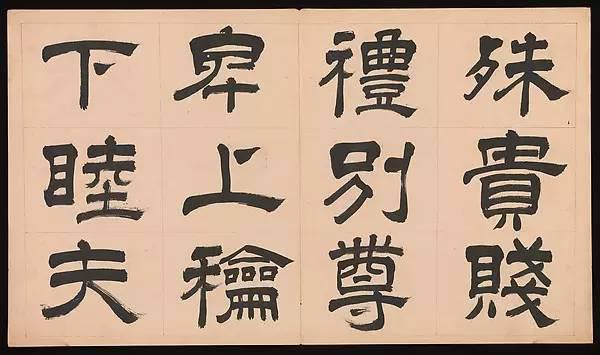 殊貴賤
禮別尊
卑上龢
下睦夫